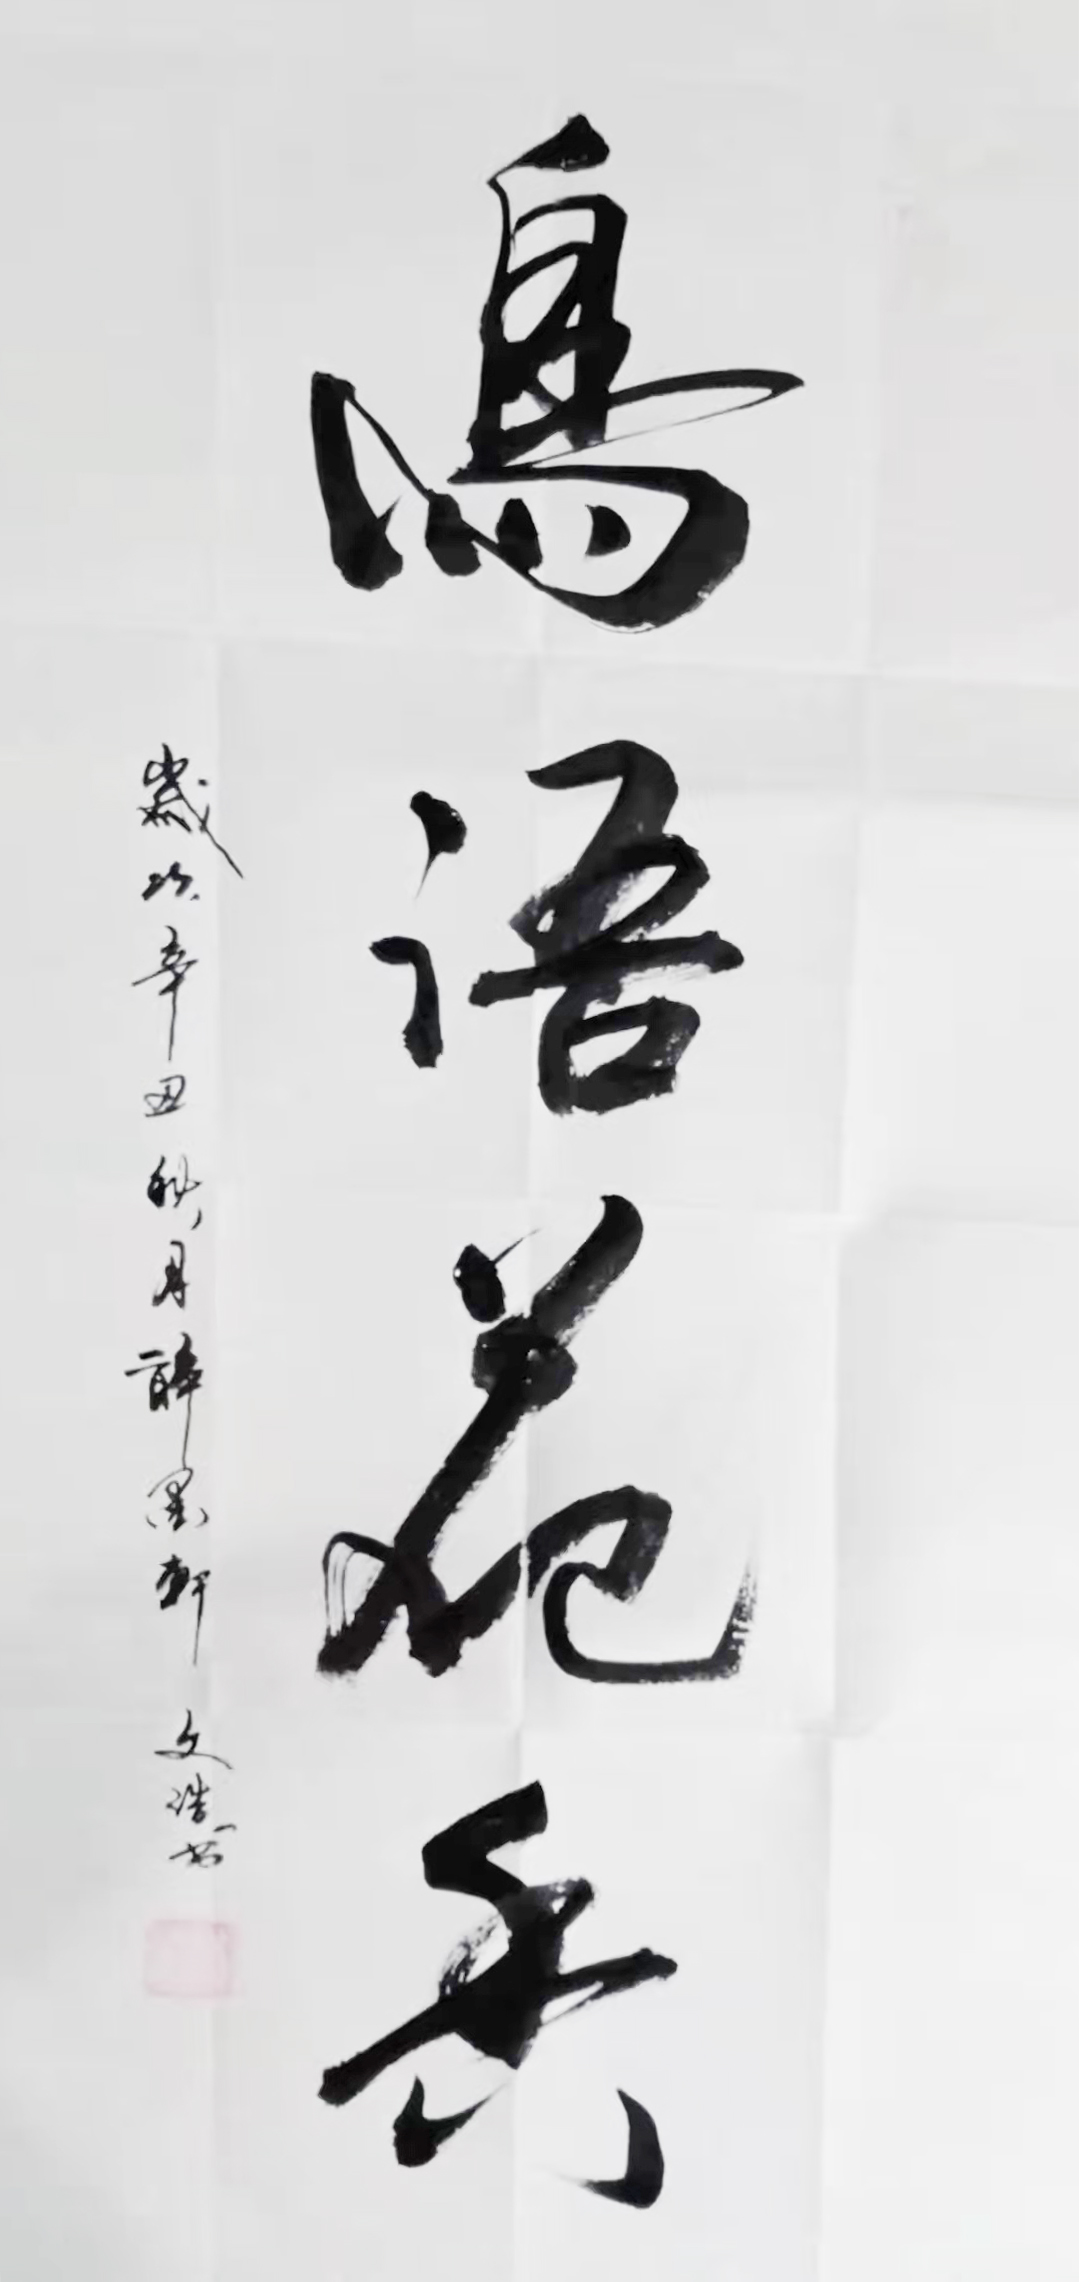 鳥语花香
歲次辛丑秋月醉墨軒文浩书